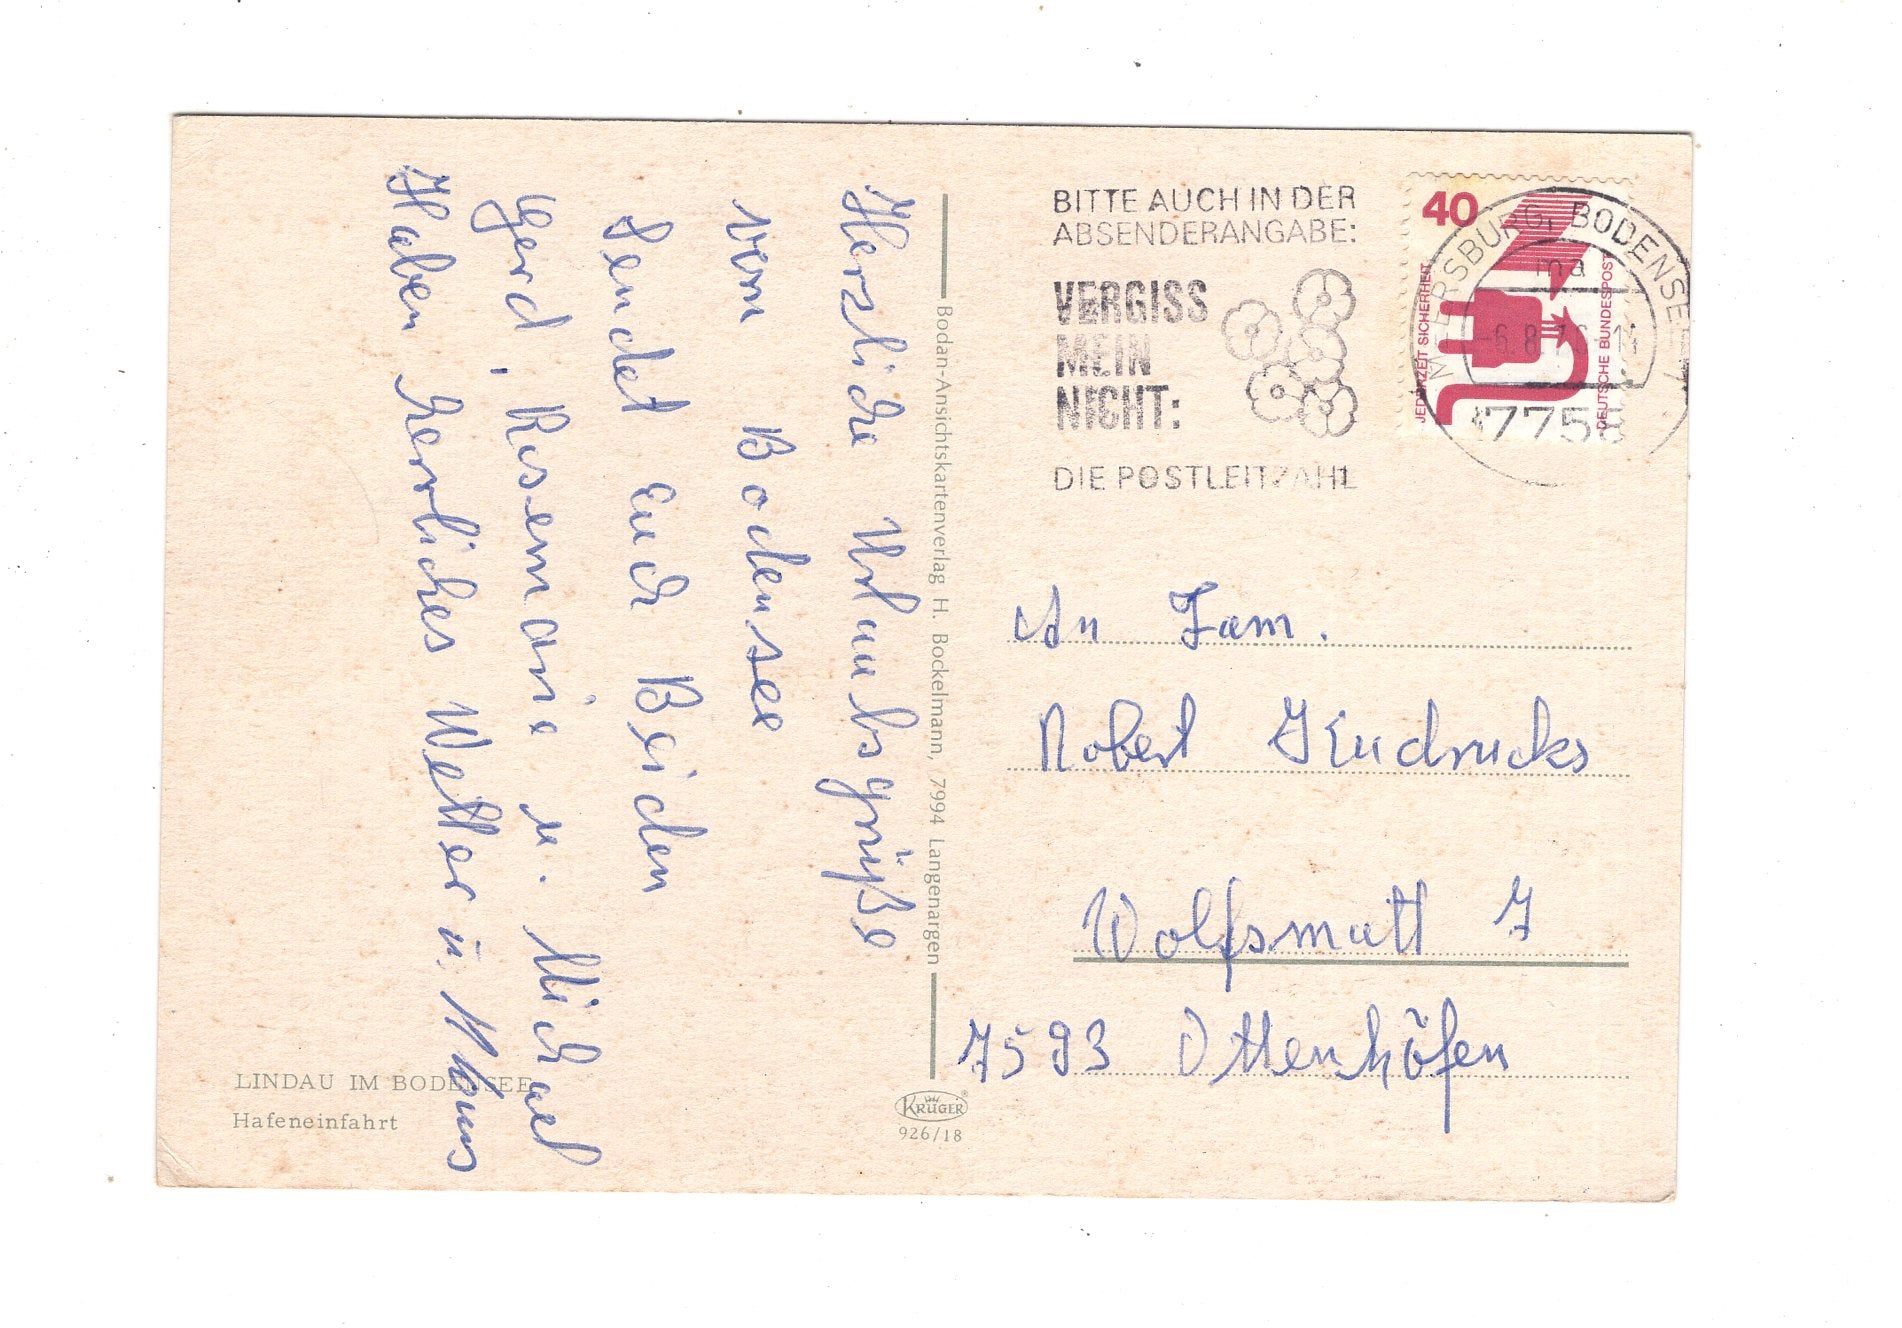 Herzliche Urlaubsgrüße
vom Bodensee
Sendet Euch Beiden
Gerd, Rosemarie u. Michael
Haben herrliches Wetter u.
LINDAU IM BODENSEE
Hafeneinfahrt
Bodan-Ansichtskartenverlag H. Bockelmann, 7994 Langenargen
KRÜGER
926/18
BITTE AUCH IN DER
ABSENDERANGABE:
VERGISS
MEIN
NICHT:
DIE POSTLEITZAHL
40
JEDERZEIT SICHERHEIT
DEUTSCHE BUNDESPOST
MEERSBURG, BODENSEE
ma
-6.8.76-11
7758
An Fam.
Robert
Wolfsmatt 7
7593 Ottenhöfen